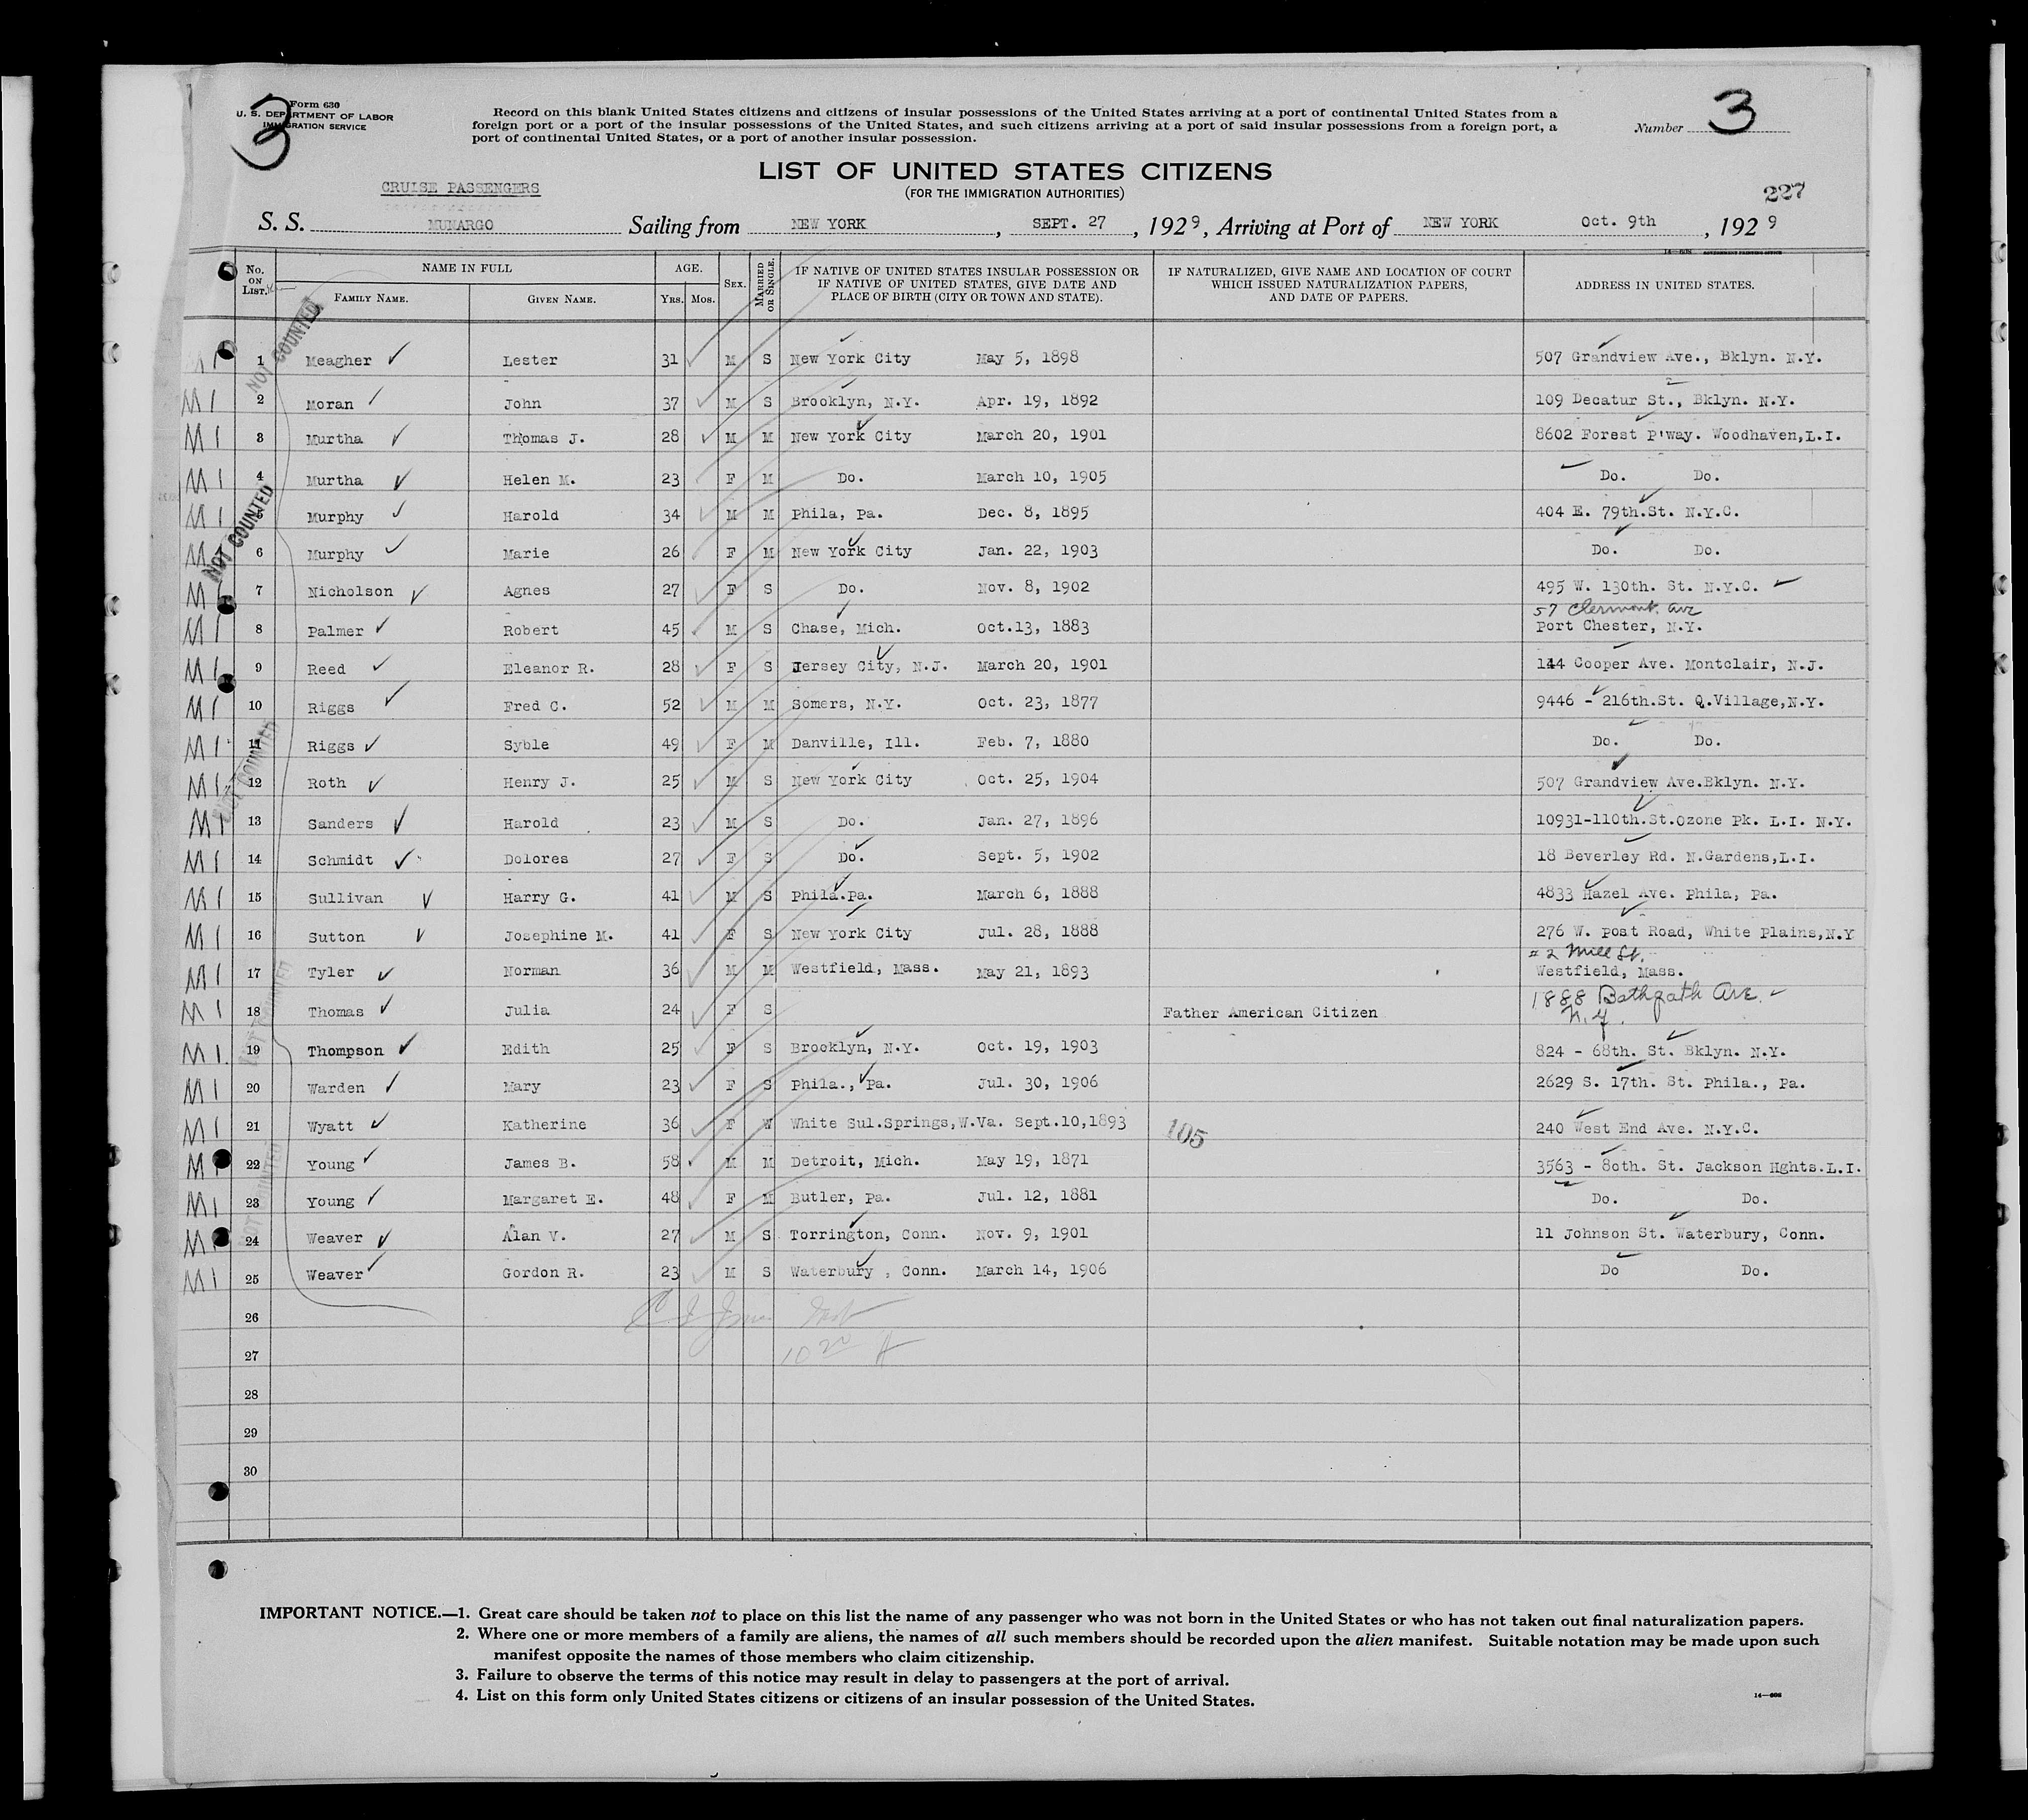 3
Form 630
U. S. DEPARTMENT OF LABOR
IMMIGRATION SERVICE
Record on this blank United States citizens and citizens of insular possessions of the United States arriving at a port of continental United States from a
foreign port or a port of the insular possessions of the United States, and such citizens arriving at a port of said insular possessions from a foreign port, a
port of continental United States, or a port of another insular possession.
Number 3
LIST OF UNITED STATES CITIZENS
(FOR THE IMMIGRATION AUTHORITIES)
CRUISE PASSENGERS
227
S. S. MUNARGO Sailing from NEW YORK, SEPT. 27, 1929, Arriving at Port of NEW YORK Oct. 9th, 1929
14—608 GOVERNMENT PRINTING OFFICE
No. ON LIST. NAME IN FULL FAMILY NAME. GIVEN NAME. AGE. Yrs. Mos. SEX. MARRIED OR SINGLE. IF NATIVE OF UNITED STATES INSULAR POSSESSION OR IF NATIVE OF UNITED STATES, GIVE DATE AND PLACE OF BIRTH (CITY OR TOWN AND STATE). IF NATURALIZED, GIVE NAME AND LOCATION OF COURT WHICH ISSUED NATURALIZATION PAPERS, AND DATE OF PAPERS. ADDRESS IN UNITED STATES.
NOT COUNTED
M 1 1 Meagher Lester 31 M S New York City May 5, 1898 507 Grandview Ave., Bklyn. N.Y.
M 1 2 Moran John 37 M S Brooklyn, N.Y. Apr. 19, 1892 109 Decatur St., Bklyn. N.Y.
M 1 3 Murtha Thomas J. 28 M M New York City March 20, 1901 8602 Forest P'way. Woodhaven,L.I.
M 1 4 Murtha Helen M. 23 F M Do. March 10, 1905 Do. Do.
NOT COUNTED
M 1 5 Murphy Harold 34 M M Phila, Pa. Dec. 8, 1895 404 E. 79th.St. N.Y.C.
M 1 6 Murphy Marie 26 F M New York City Jan. 22, 1903 Do. Do.
M 1 7 Nicholson Agnes 27 F S Do. Nov. 8, 1902 495 W. 130th. St. N.Y.C.
57 Clermont Ave
M 1 8 Palmer Robert 45 M S Chase, Mich. Oct.13, 1883 Port Chester, N.Y.
M 1 9 Reed Eleanor R. 28 F S Jersey City, N.J. March 20, 1901 144 Cooper Ave. Montclair, N.J.
M 1 10 Riggs Fred C. 52 M M Somers, N.Y. Oct. 23, 1877 9446 - 216th.St. Q.Village,N.Y.
NOT COUNTED
M 1 11 Riggs Syble 49 F M Danville, Ill. Feb. 7, 1880 Do. Do.
M 1 12 Roth Henry J. 25 M S New York City Oct. 25, 1904 507 Grandview Ave.Bklyn. N.Y.
M 1 13 Sanders Harold 23 M S Do. Jan. 27, 1896 10931-110th.St.Ozone Pk. L.I. N.Y.
M 1 14 Schmidt Dolores 27 F S Do. Sept. 5, 1902 18 Beverley Rd. N.Gardens,L.I.
M 1 15 Sullivan Harry G. 41 M S Phila.Pa. March 6, 1888 4833 Hazel Ave. Phila, Pa.
M 1 16 Sutton Josephine M. 41 F S New York City Jul. 28, 1888 276 W. Post Road, White Plains,N.Y
# 2 Mill St.
NOT COUNTED
M 1 17 Tyler Norman 36 M M Westfield, Mass. May 21, 1893 Westfield, Mass.
M 1 18 Thomas Julia 24 F S Father American Citizen 1888 Bathgath Ave. N.Y.
M 1 19 Thompson Edith 25 F S Brooklyn, N.Y. Oct. 19, 1903 824 - 68th. St. Bklyn. N.Y.
M 1 20 Warden Mary 23 F S Phila., Pa. Jul. 30, 1906 2629 S. 17th. St. Phila., Pa.
M 1 21 Wyatt Katherine 36 F W White Sul.Springs,W.Va. Sept.10,1893 105 240 West End Ave. N.Y.C.
NOT COUNTED
M 1 22 Young James B. 58 M M Detroit, Mich. May 19, 1871 3563 - 80th. St. Jackson Hghts.L.I.
M 1 23 Young Margaret E. 48 F M Butler, Pa. Jul. 12, 1881 Do. Do.
M 1 24 Weaver Alan V. 27 M S Torrington, Conn. Nov. 9, 1901 11 Johnson St. Waterbury, Conn.
M 1 25 Weaver Gordon R. 23 M S Waterbury , Conn. March 14, 1906 Do Do.
26
27
28
29
30
IMPORTANT NOTICE.—1. Great care should be taken not to place on this list the name of any passenger who was not born in the United States or who has not taken out final naturalization papers.
2. Where one or more members of a family are aliens, the names of all such members should be recorded upon the alien manifest. Suitable notation may be made upon such
manifest opposite the names of those members who claim citizenship.
3. Failure to observe the terms of this notice may result in delay to passengers at the port of arrival.
4. List on this form only United States citizens or citizens of an insular possession of the United States.
14—608